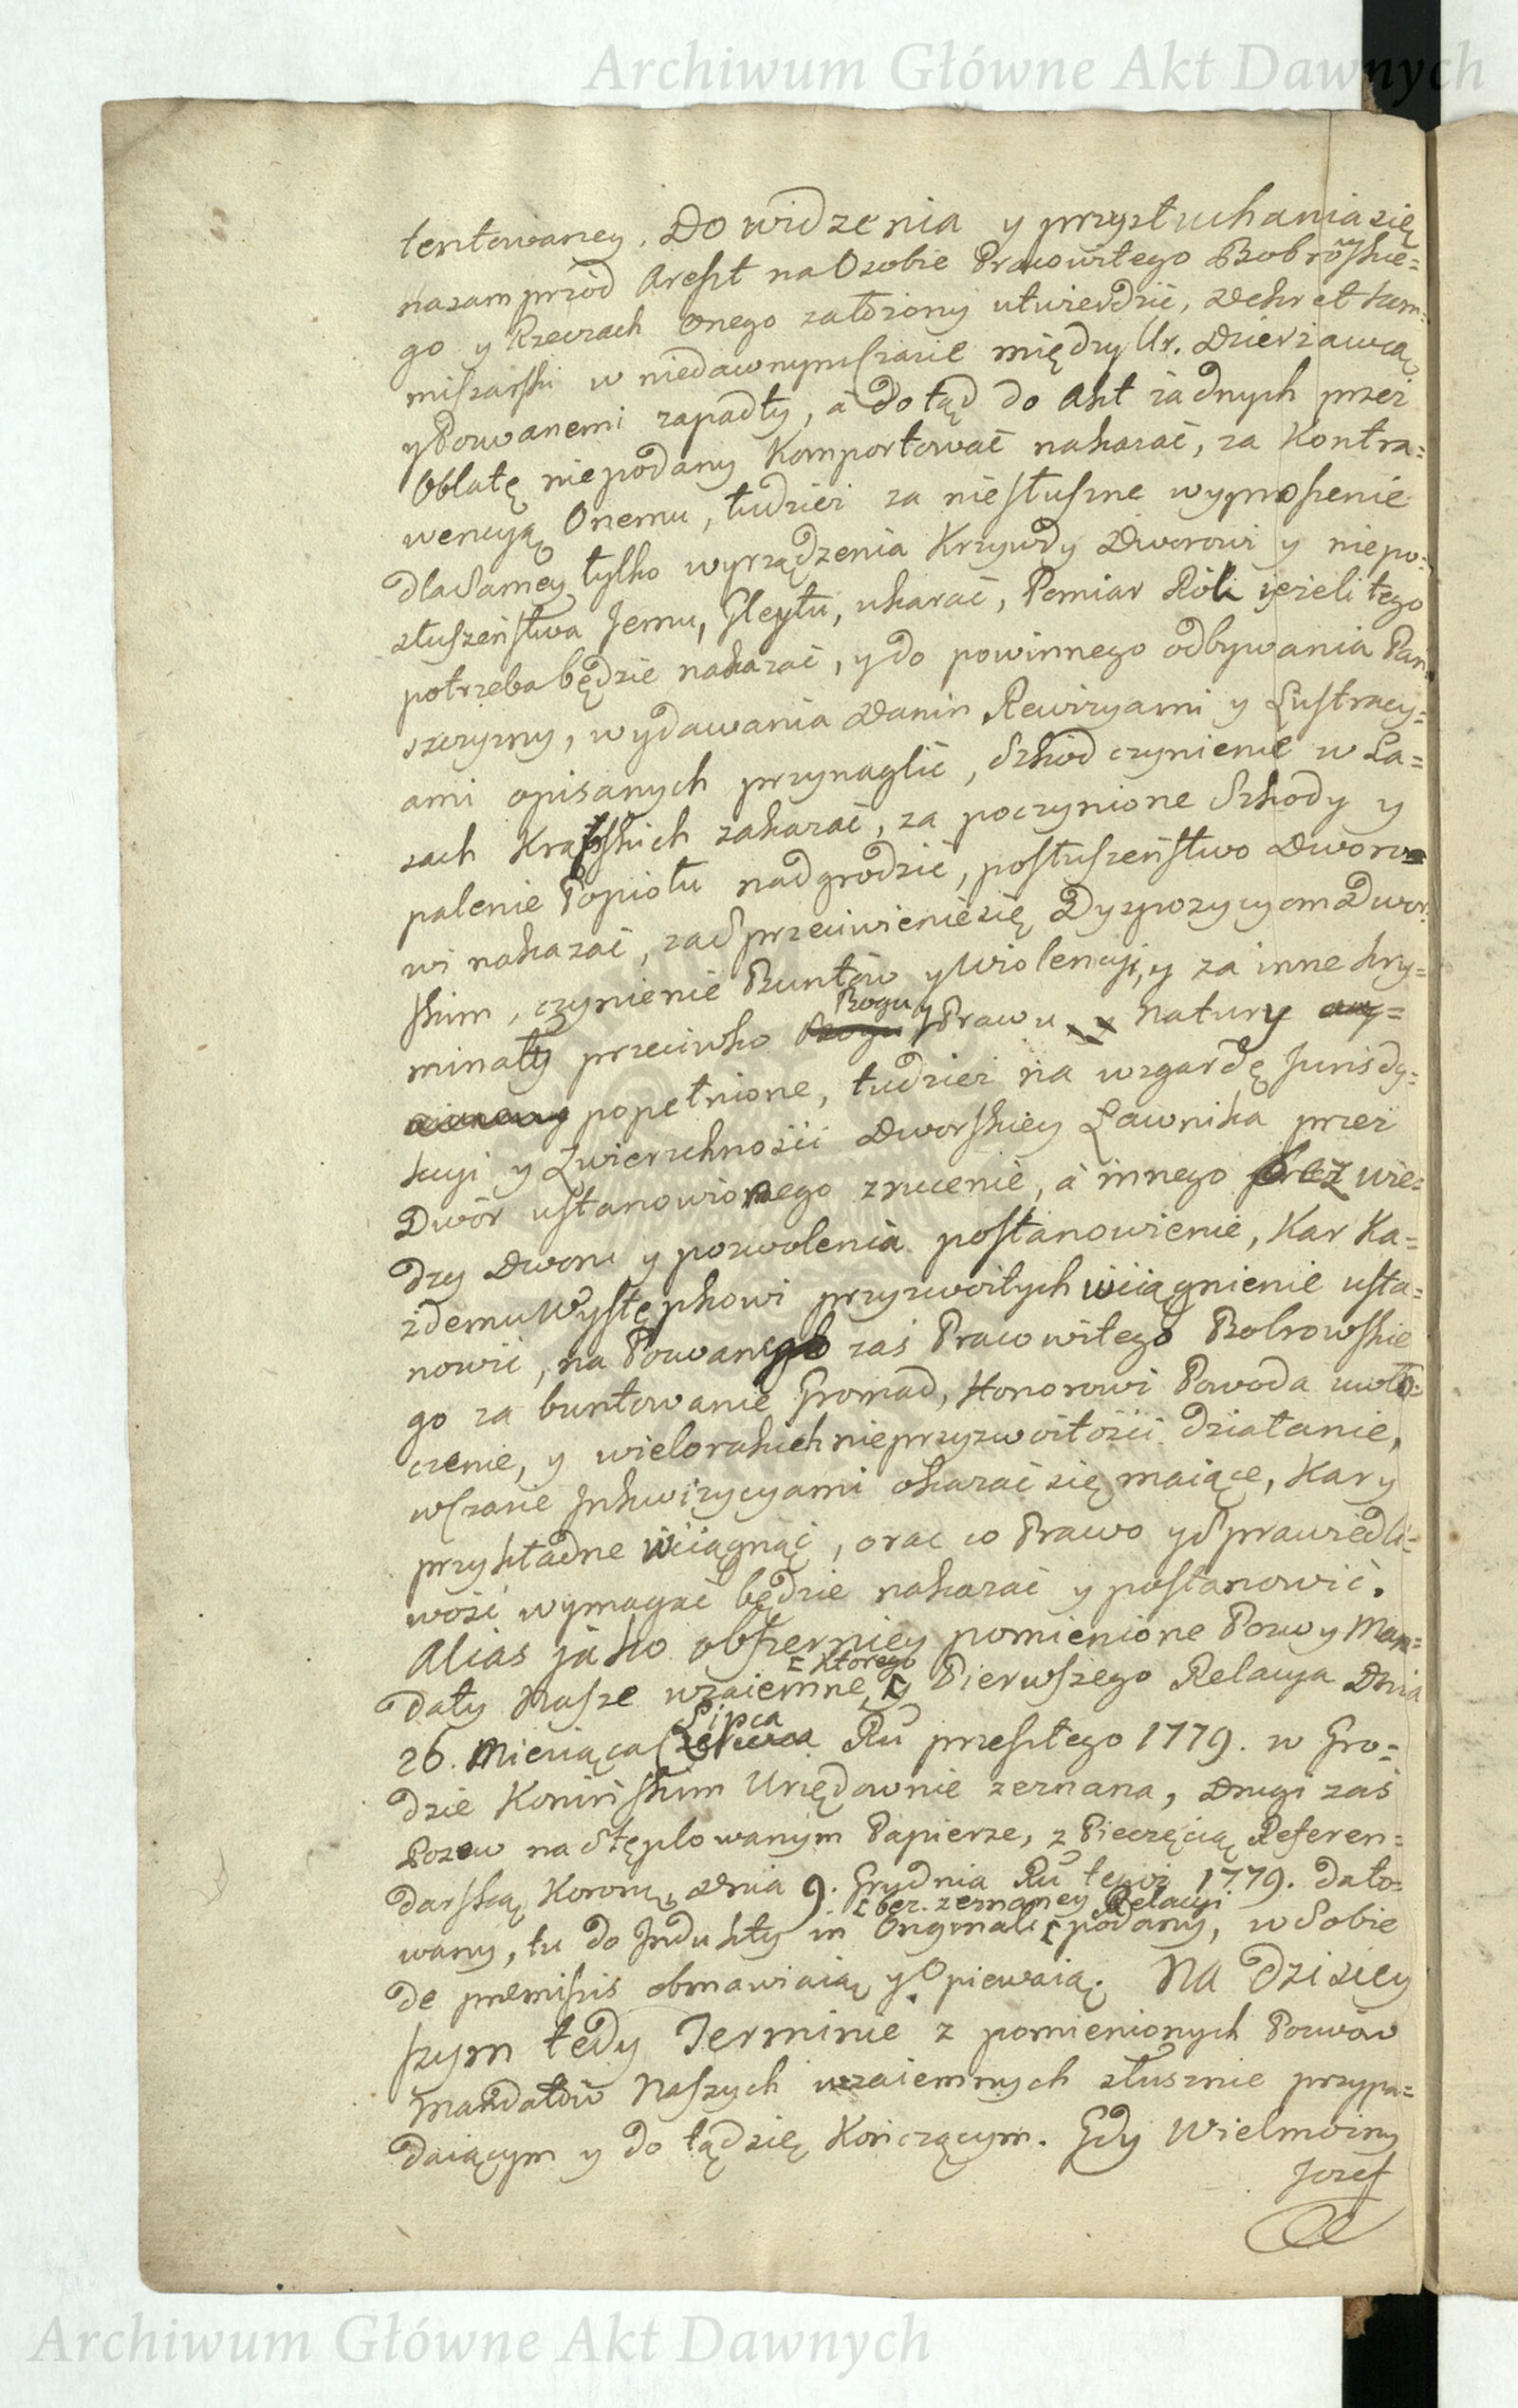 Archiwum Główne Akt Dawnych
tentowaney. Do widzenia y przysłuchania się
nasam przód Areszt na Osobie Pracowitego Bobrowskie=
go y Rzeczach onego założony utwierdzić, Dekret Kom=
misarski w niedawnym Czasie między Ur. Dzierżawcą
y Pozwanemi zapadły, á dotąd do Akt żadnych przez
Oblatę niepodany Komportować nakazać, za Kontra=
wencyą Onemu, tudzież za niesłuszne wyproszenie
dla Samey tylko wyrządzenia Krzywdy Dworowi y niepo=
słuszeństwa Jemu, Gleytu, ukarać, Pomiar Ról jeżeli tego
potrzeba będzie nakazać, y do powinnego odbywania Pań=
szczyzny, wydawania Danin Rewizyami y Lustracy=
ami opisanych przynaglić, Szkód czynienie w La=
sach Krayskich zakazać, za poczynione Szkody y
palenie Popiołu nadgrodzić, posłuszeństwo Dworo=
wi nakazać, za Sprzeciwienie się Dyspozycyom Dwor=
skim, czynienie Buntów y Wiolencyi, y za inne kry=
minały przeciwko Bogu y Prawu natury
popełnione, tudzież na wzgardę Jurisdy=
kcyi y Zwierzchności Dworskiey Ławnika przez
Dwór ustanowionego zrucenie, á innego bez wie=
dzy Dworu y pozwolenia postanowienie, Kar Ka=
żdemu Występkowi przyzwoitych wciągnienie usta=
nowić, na Pozwanego zaś Pracowitego Bobrowskie
go za buntowanie Gromad, Honorowi Powoda uwło=
czenie, y wielorakich nieprzyzwoitości działanie,
w Czasie Inkwizycyami okazać się maiące, Kary
przykładne wciągnąć, oraz co Prawo y Sprawiedli=
wość wymagać będzie nakazać y postanowić.
Alias jako obszerniey pomienione Pozwy Man=
daty Nasze wzaiemne, z Którego Pierwszego Relacya Dnia
26. Miesiąca Lipca Ru przeszłego 1779. w Gro=
dzie Konińskim Urzędownie zeznana, Drugi zaś
Pozew na Stęplowanym Papierze, z Pieczęcią Referen=
darską Koronną, Dnia 9. Grudnia Ru tegoż 1779. dato=
wany, tu do Indukty in Originali bez zeznaney Relacyi podany, w Sobie
de premissis obmawiaią y Opiewaią. Na dzisiey
szym tedy Terminie z pomienionych Pozwów
Mandatów Naszych wzaiemnych słusznie przypa=
daiącym y dotąd się Kończącym. Gdy Wielmożny
Jozef
Archiwum Główne Akt Dawnych